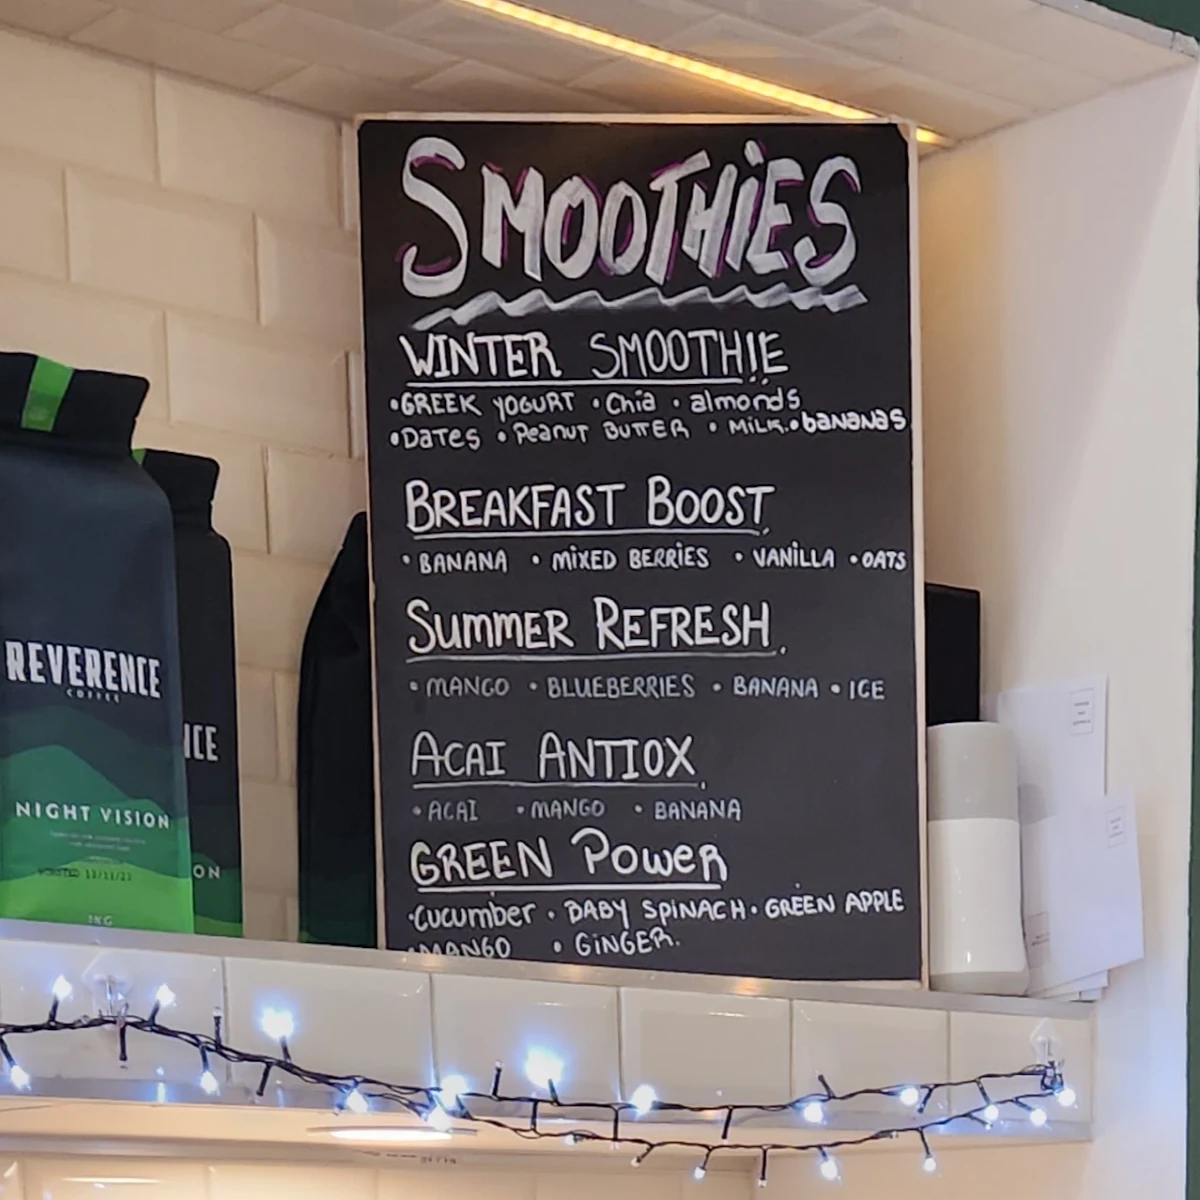 SMOOTHiES
WINTER SMOOTHIE
•GREEK YOGURT •Chia • almonds
•DATES • Peanut BUTTER • MiLK.•bANANAS
BREAKFAST BOOST
• BANANA • MiXED BERRiES • VANiLLA •OATS
SummER REFRESH
• MANGO • BLUEBERRIES • BANANA • ICE
ACAI ANTIOX
• ACAI • MANGO • BANANA
GREEN Power
•cucumber • BABY SPiNACH • GREEN APPLE
•MANGO • GiNGER.
REVERENCE
COFFEE
NIGHT VISION
ROASTED 13/11/23
1KG
ICE
ON